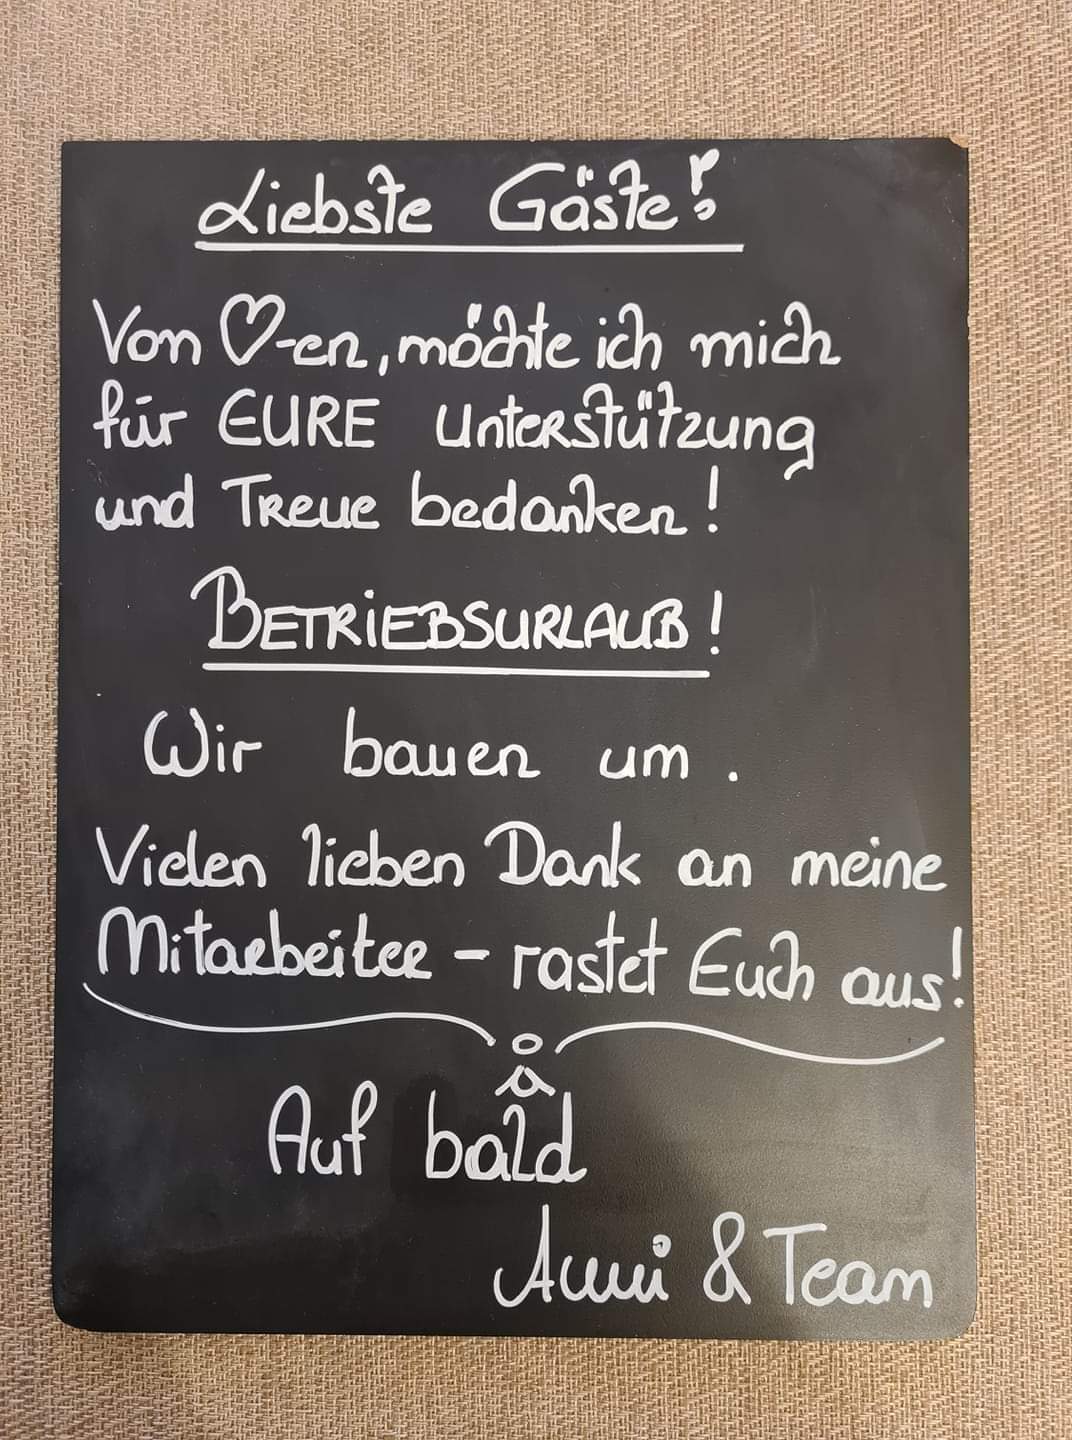 Liebste Gäste!
Von ♡-en, möchte ich mich
für EURE Unterstützung
und Treue bedanken!
BETRIEBSURLAUB!
Wir bauen um.
Vielen lieben Dank an meine
Mitarbeiter - rastet Euch aus!
Auf bald
& Team